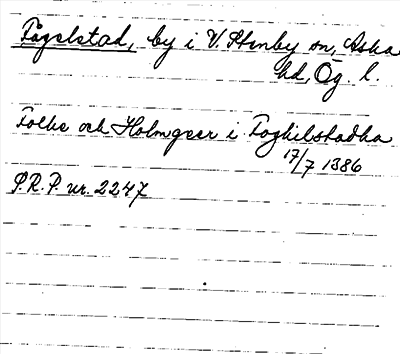 Fågelstad, by i V. Stenby sn, Aska
hd, Ög. l.
Folke och Holmgeer i Foghilstadha
17/7 1386
P.R.P. nr. 2247